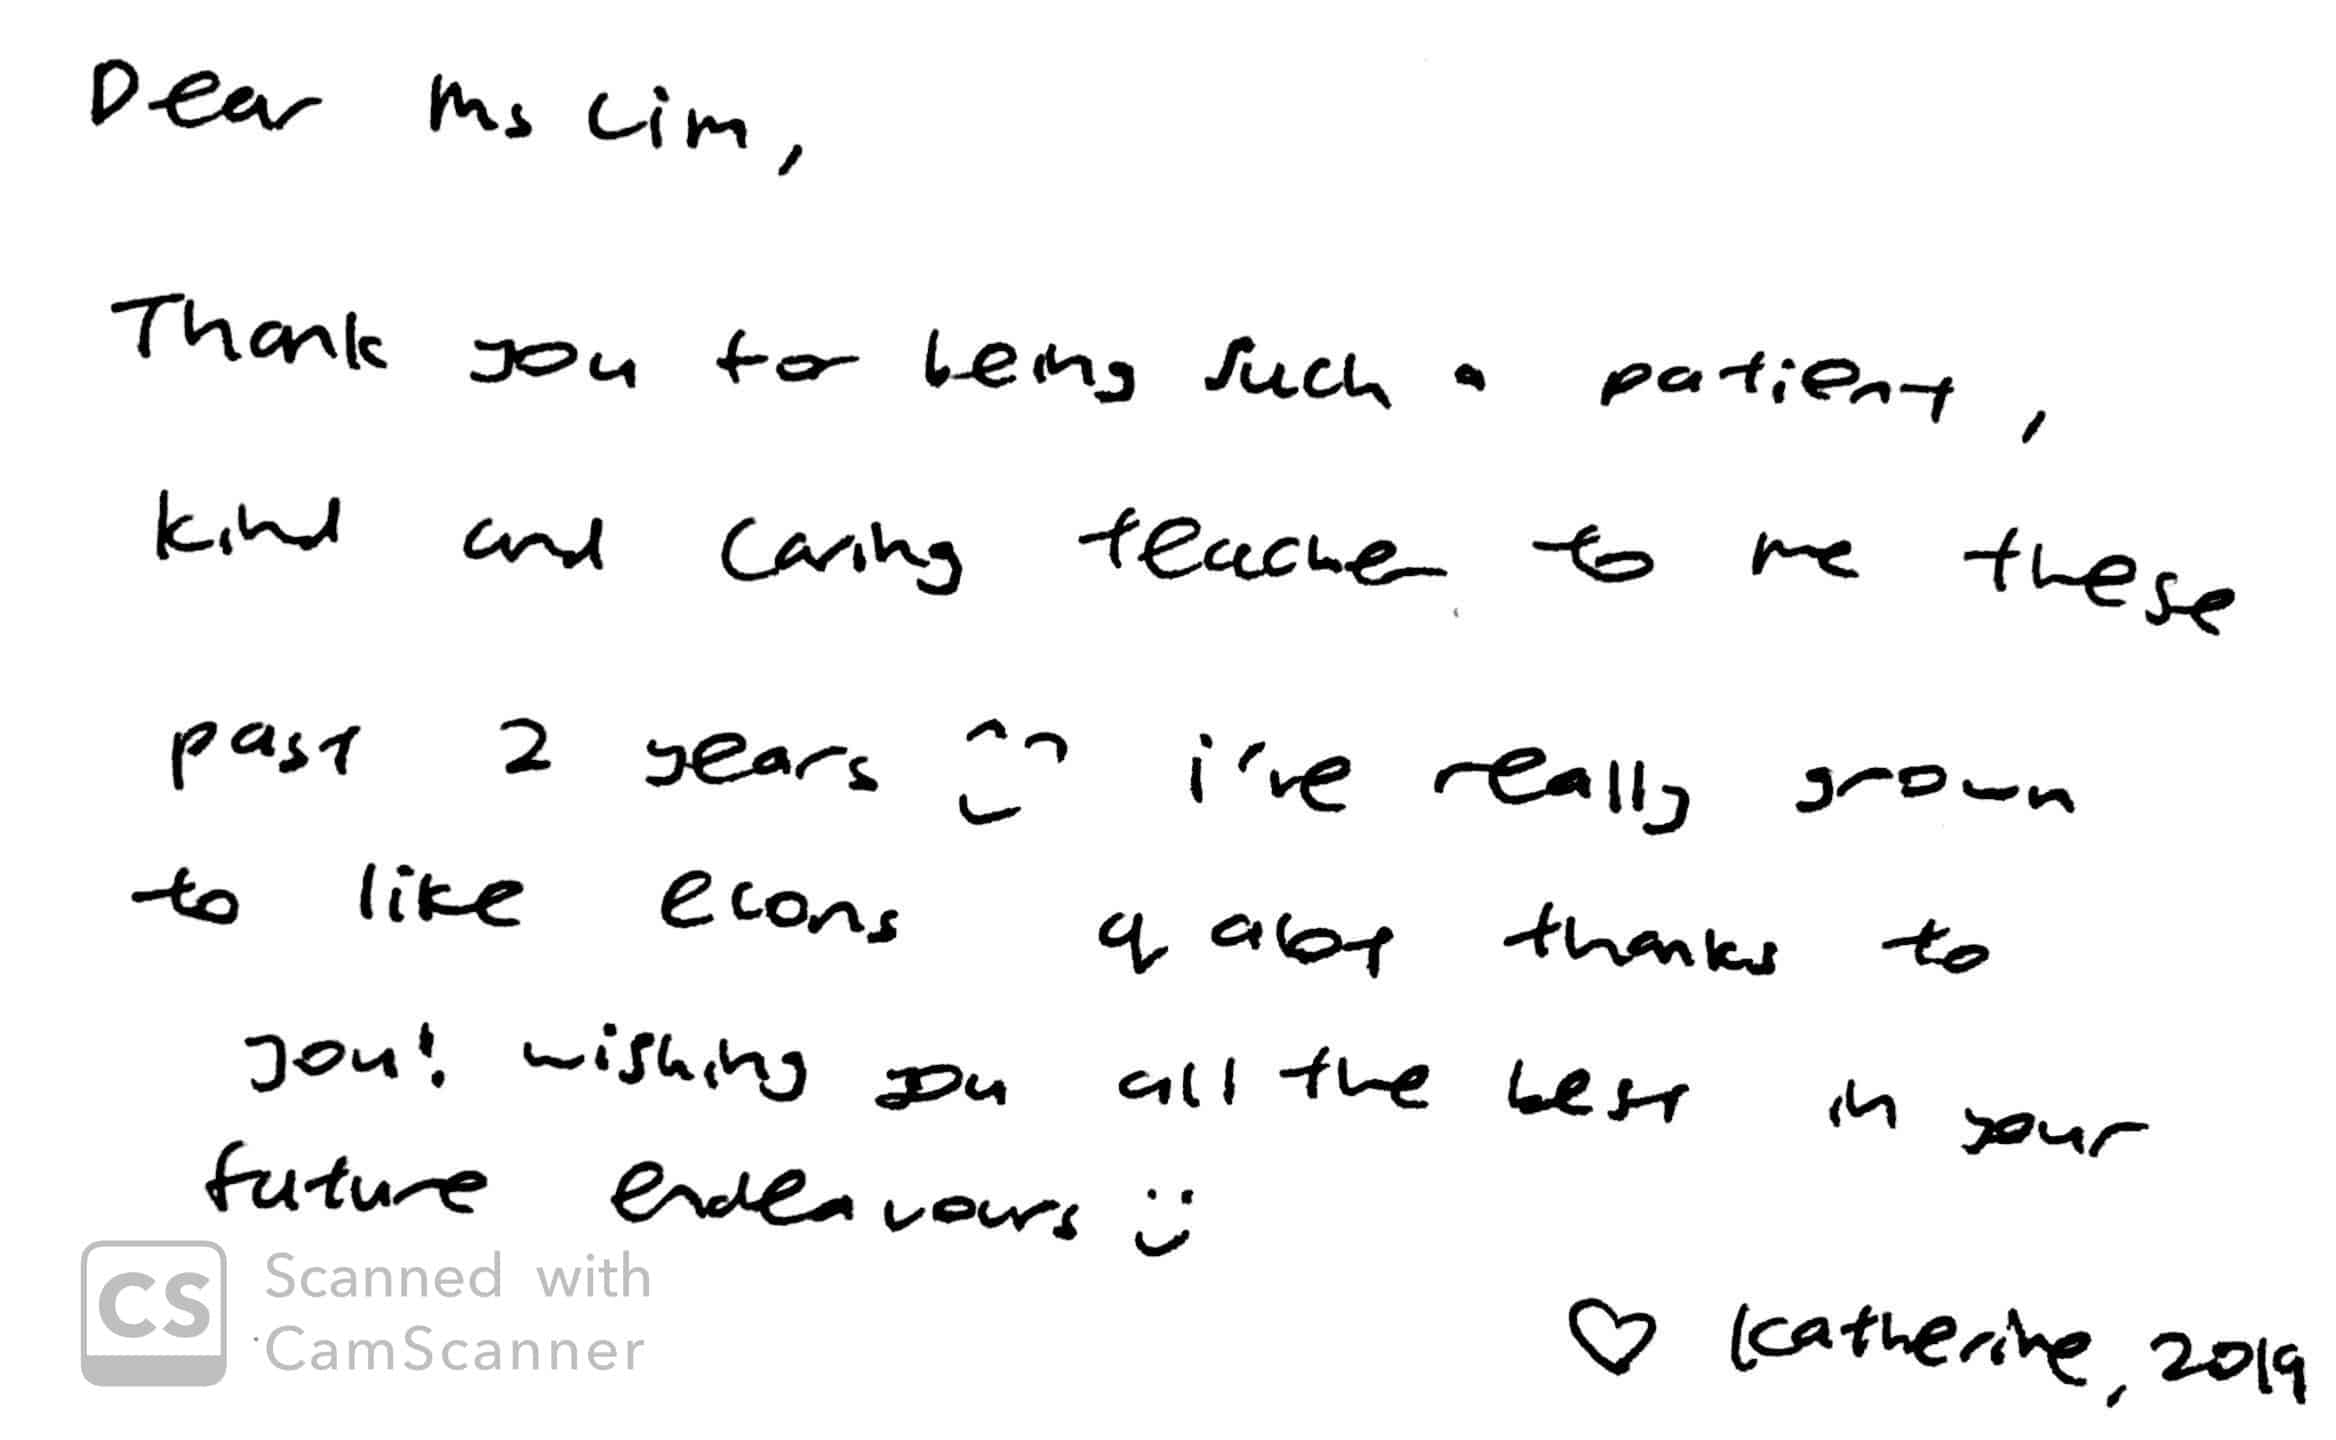 Dear Ms Lim,
Thank you for being such a patient,
kind and caring teacher to me these
past 2 years i've really grown
to like econs a lot thanks to
you! wishing you all the best in your
future endeavours :)
♡ Katherine, 2019
Scanned with
CamScanner
CS